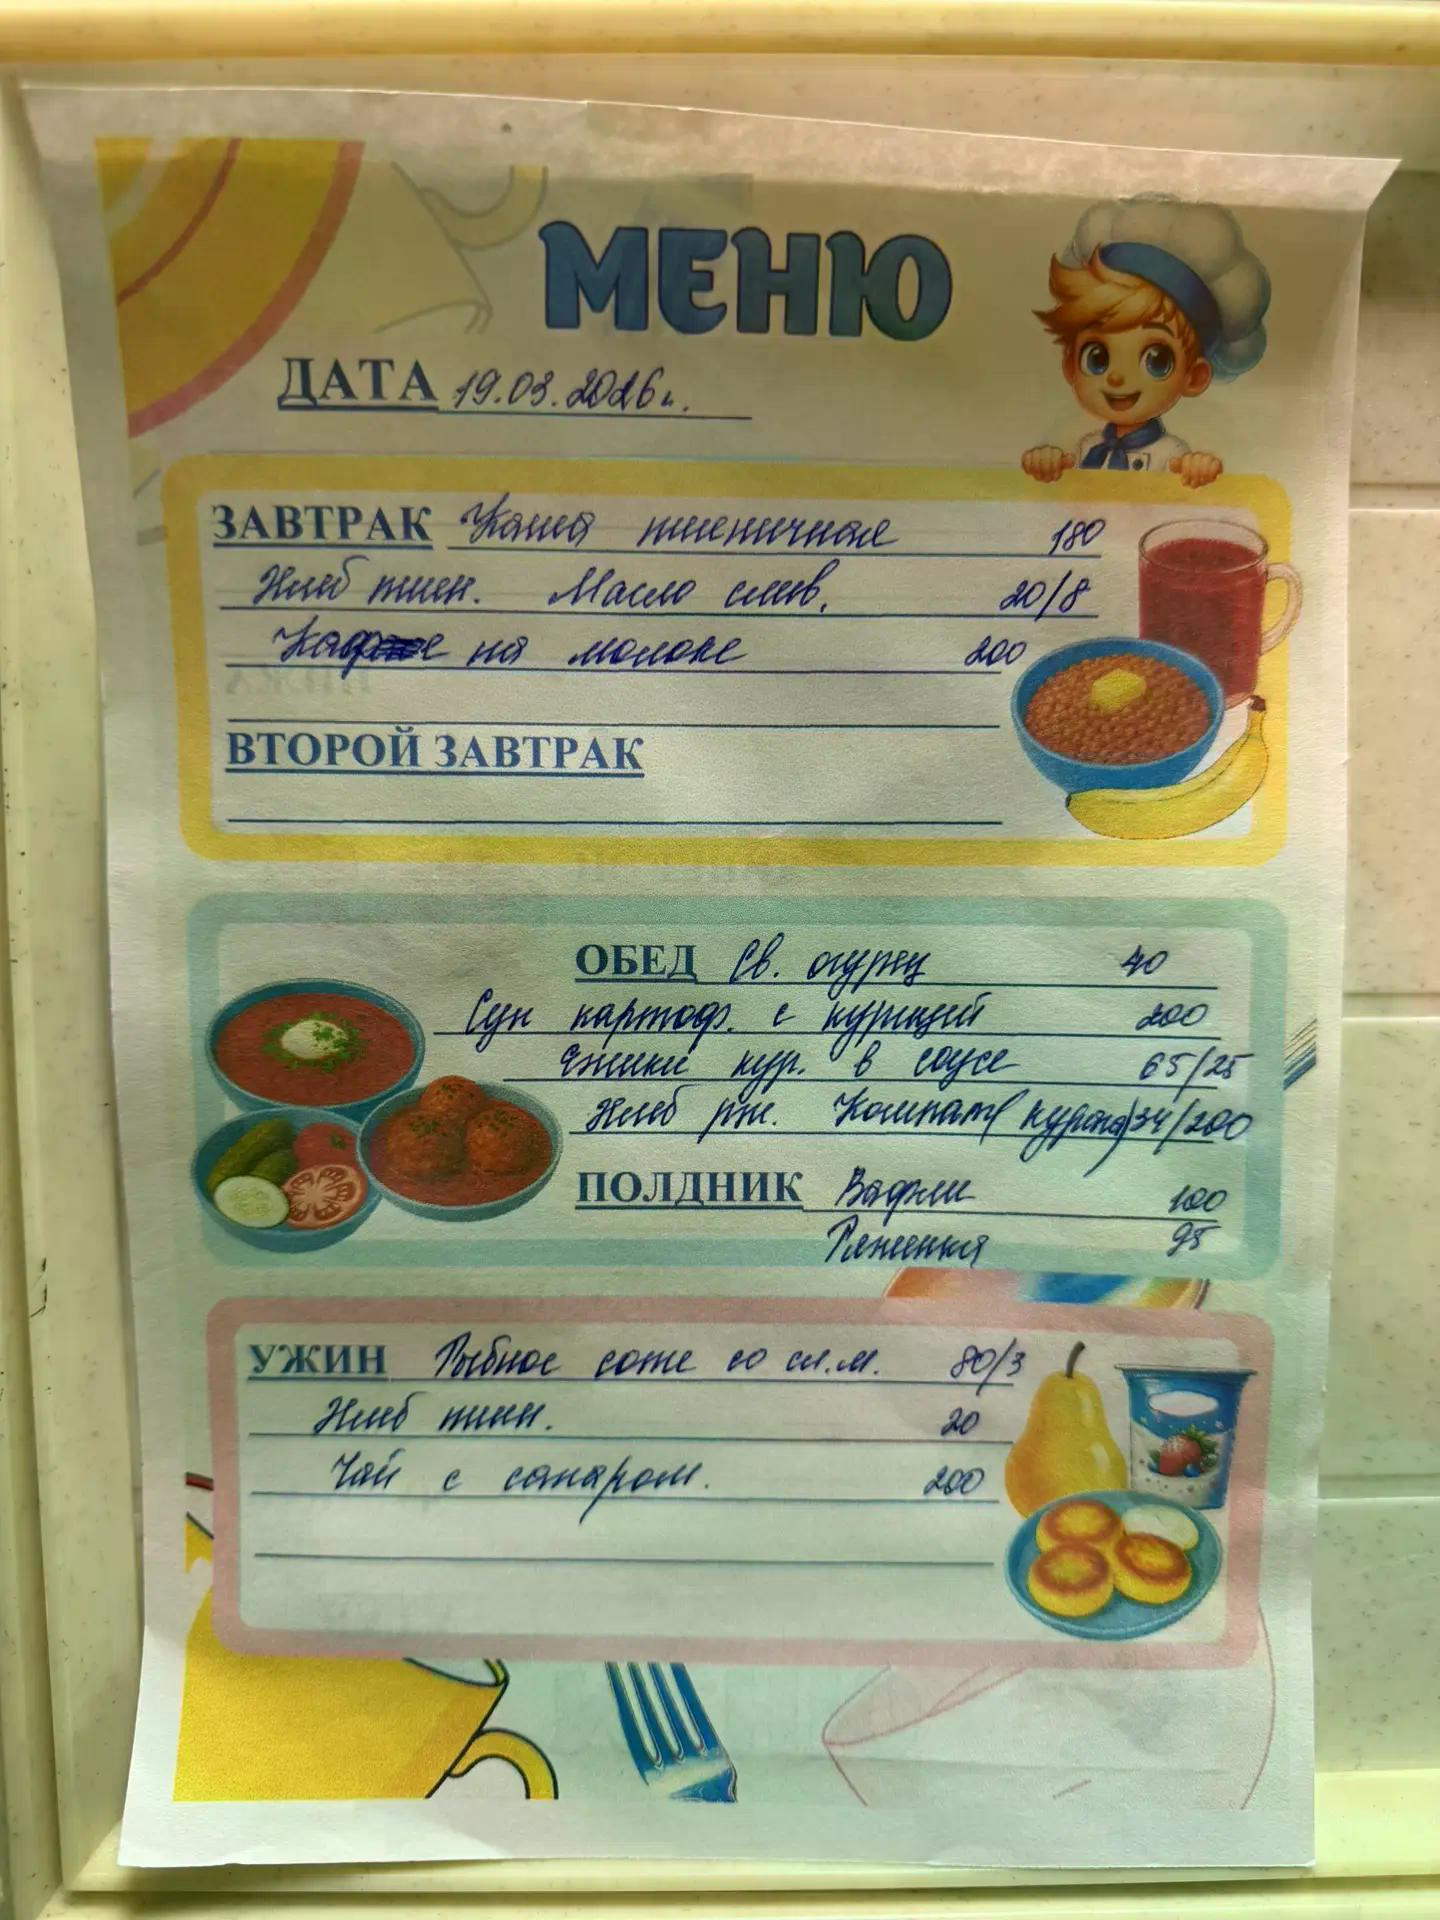 МЕНЮ
ДАТА 19.03.2026г.
ЗАВТРАК Каша пшеничная 180
Хлеб пшен. Масло слив. 20/8
Кофе на молоке 200
ВТОРОЙ ЗАВТРАК
ОБЕД Св. огурец 40
Суп картоф. с курицей 200
Ёжики кур. в соусе 65/25
Хлеб рж. Компот (курага) 34/200
ПОЛДНИК Вафли 100
Ряженка 95
УЖИН Рыбное соте со сл.м. 80/3
Хлеб пшен. 20
Чай с сахаром. 200